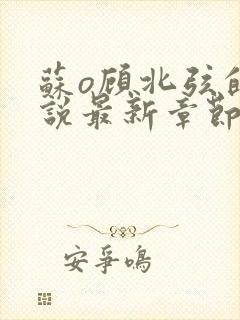 蘇o顾北弦的
說最新章節
安爭鳴